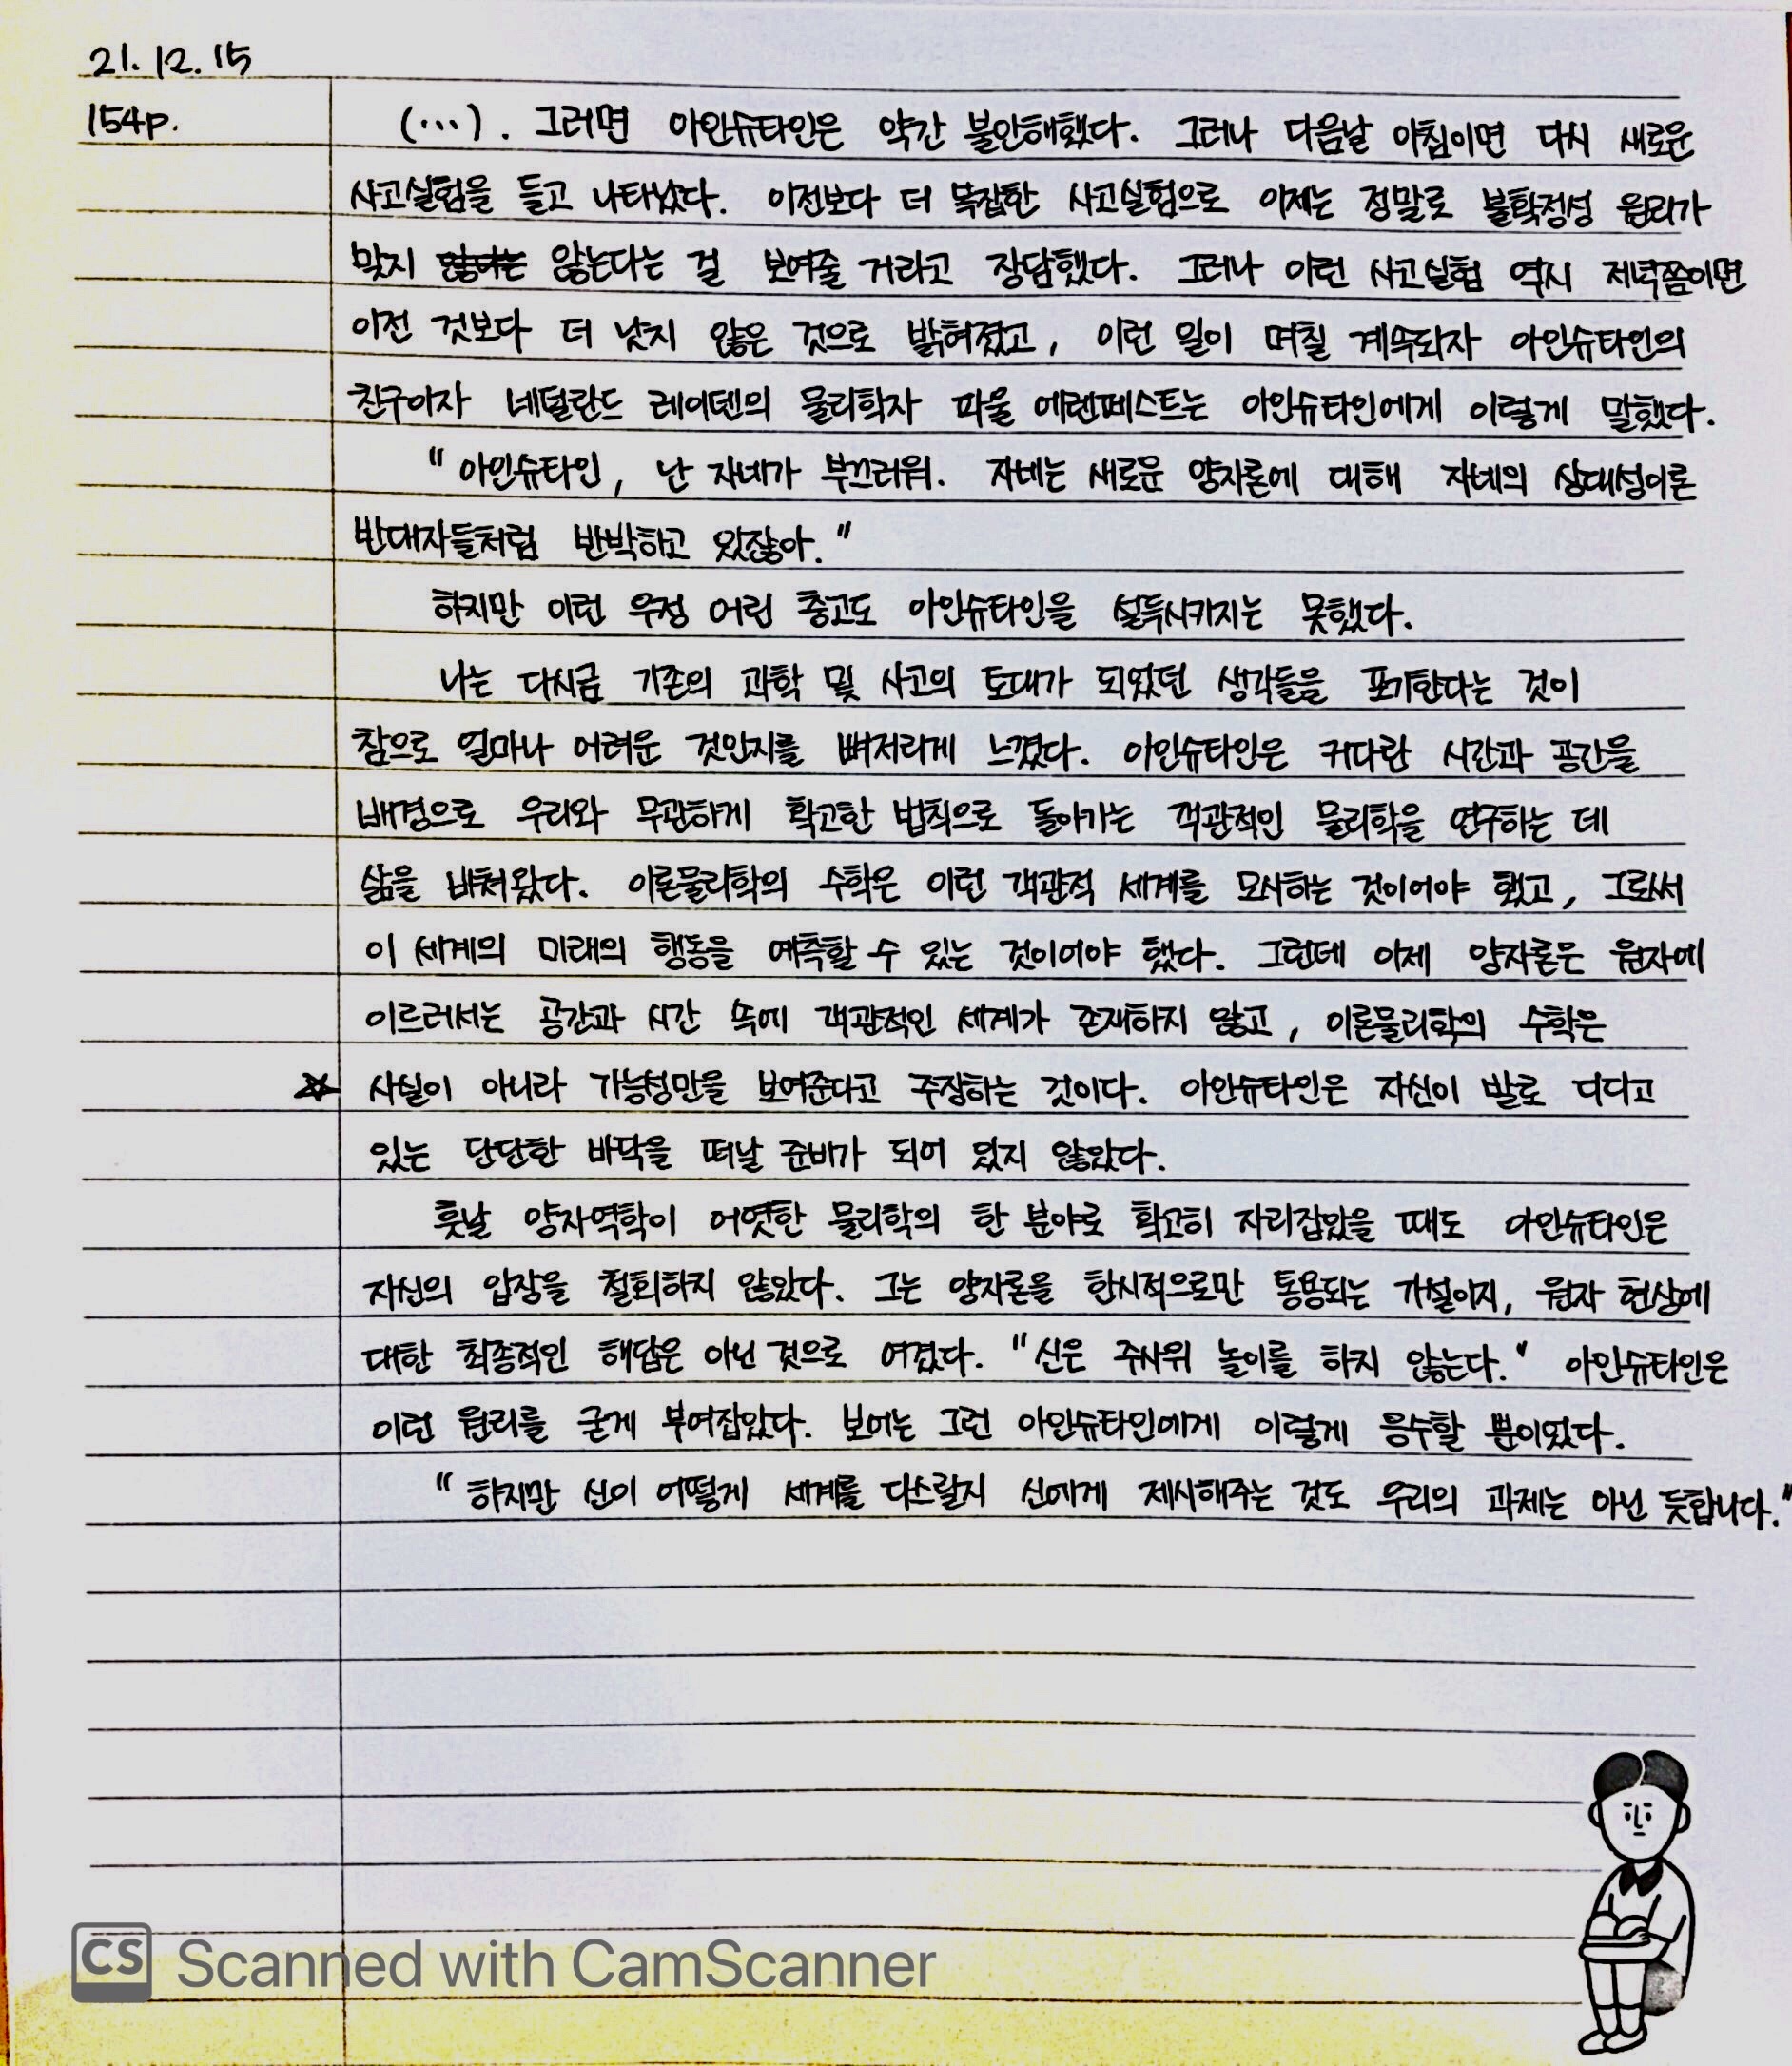 21. 12. 15
154p.
(…). 그러면 아인슈타인은 약간 불안해했다. 그러나 다음날 아침이면 다시 새로운
사고실험을 들고 나타났다. 이전보다 더 복잡한 사고실험으로 이제는 정말로 불확정성 원리가
맞지 않는다는 걸 보여줄 거라고 장담했다. 그러나 이런 사고실험 역시 저녁쯤이면
이전 것보다 더 낫지 않은 것으로 밝혀졌고, 이런 일이 며칠 계속되자 아인슈타인의
친구이자 네덜란드 레이덴의 물리학자 파울 에렌페스트는 아인슈타인에게 이렇게 말했다.
"아인슈타인, 난 자네가 부끄러워. 자네는 새로운 양자론에 대해 자네의 상대성이론
반대자들처럼 반박하고 있잖아."
하지만 이런 우정 어린 충고도 아인슈타인을 설득시키지는 못했다.
나는 다시금 기존의 과학 및 사고의 토대가 되었던 생각들을 포기한다는 것이
참으로 얼마나 어려운 것인지를 뼈저리게 느꼈다. 아인슈타인은 커다란 시간과 공간을
배경으로 우리와 무관하게 확고한 법칙으로 돌아가는 객관적인 물리학을 연구하는 데
삶을 바쳐왔다. 이론물리학의 수학은 이런 객관적 세계를 묘사하는 것이어야 했고, 그로써
이 세계의 미래의 행동을 예측할 수 있는 것이어야 했다. 그런데 이제 양자론은 원자에
이르러서는 공간과 시간 속에 객관적인 세계가 존재하지 않고, 이론물리학의 수학은
☆ 사실이 아니라 가능성만을 보여준다고 주장하는 것이다. 아인슈타인은 자신이 발로 디디고
있는 단단한 바닥을 떠날 준비가 되어 있지 않았다.
훗날 양자역학이 어엿한 물리학의 한 분야로 확고히 자리잡았을 때도 아인슈타인은
자신의 입장을 철회하지 않았다. 그는 양자론을 한시적으로만 통용되는 가설이지, 원자 현상에
대한 최종적인 해답은 아닌 것으로 여겼다. "신은 주사위 놀이를 하지 않는다." 아인슈타인은
이런 원리를 굳게 부여잡았다. 보어는 그런 아인슈타인에게 이렇게 응수할 뿐이었다.
"하지만 신이 어떻게 세계를 다스릴지 신에게 제시해주는 것도 우리의 과제는 아닌 듯합니다."
CS Scanned with CamScanner